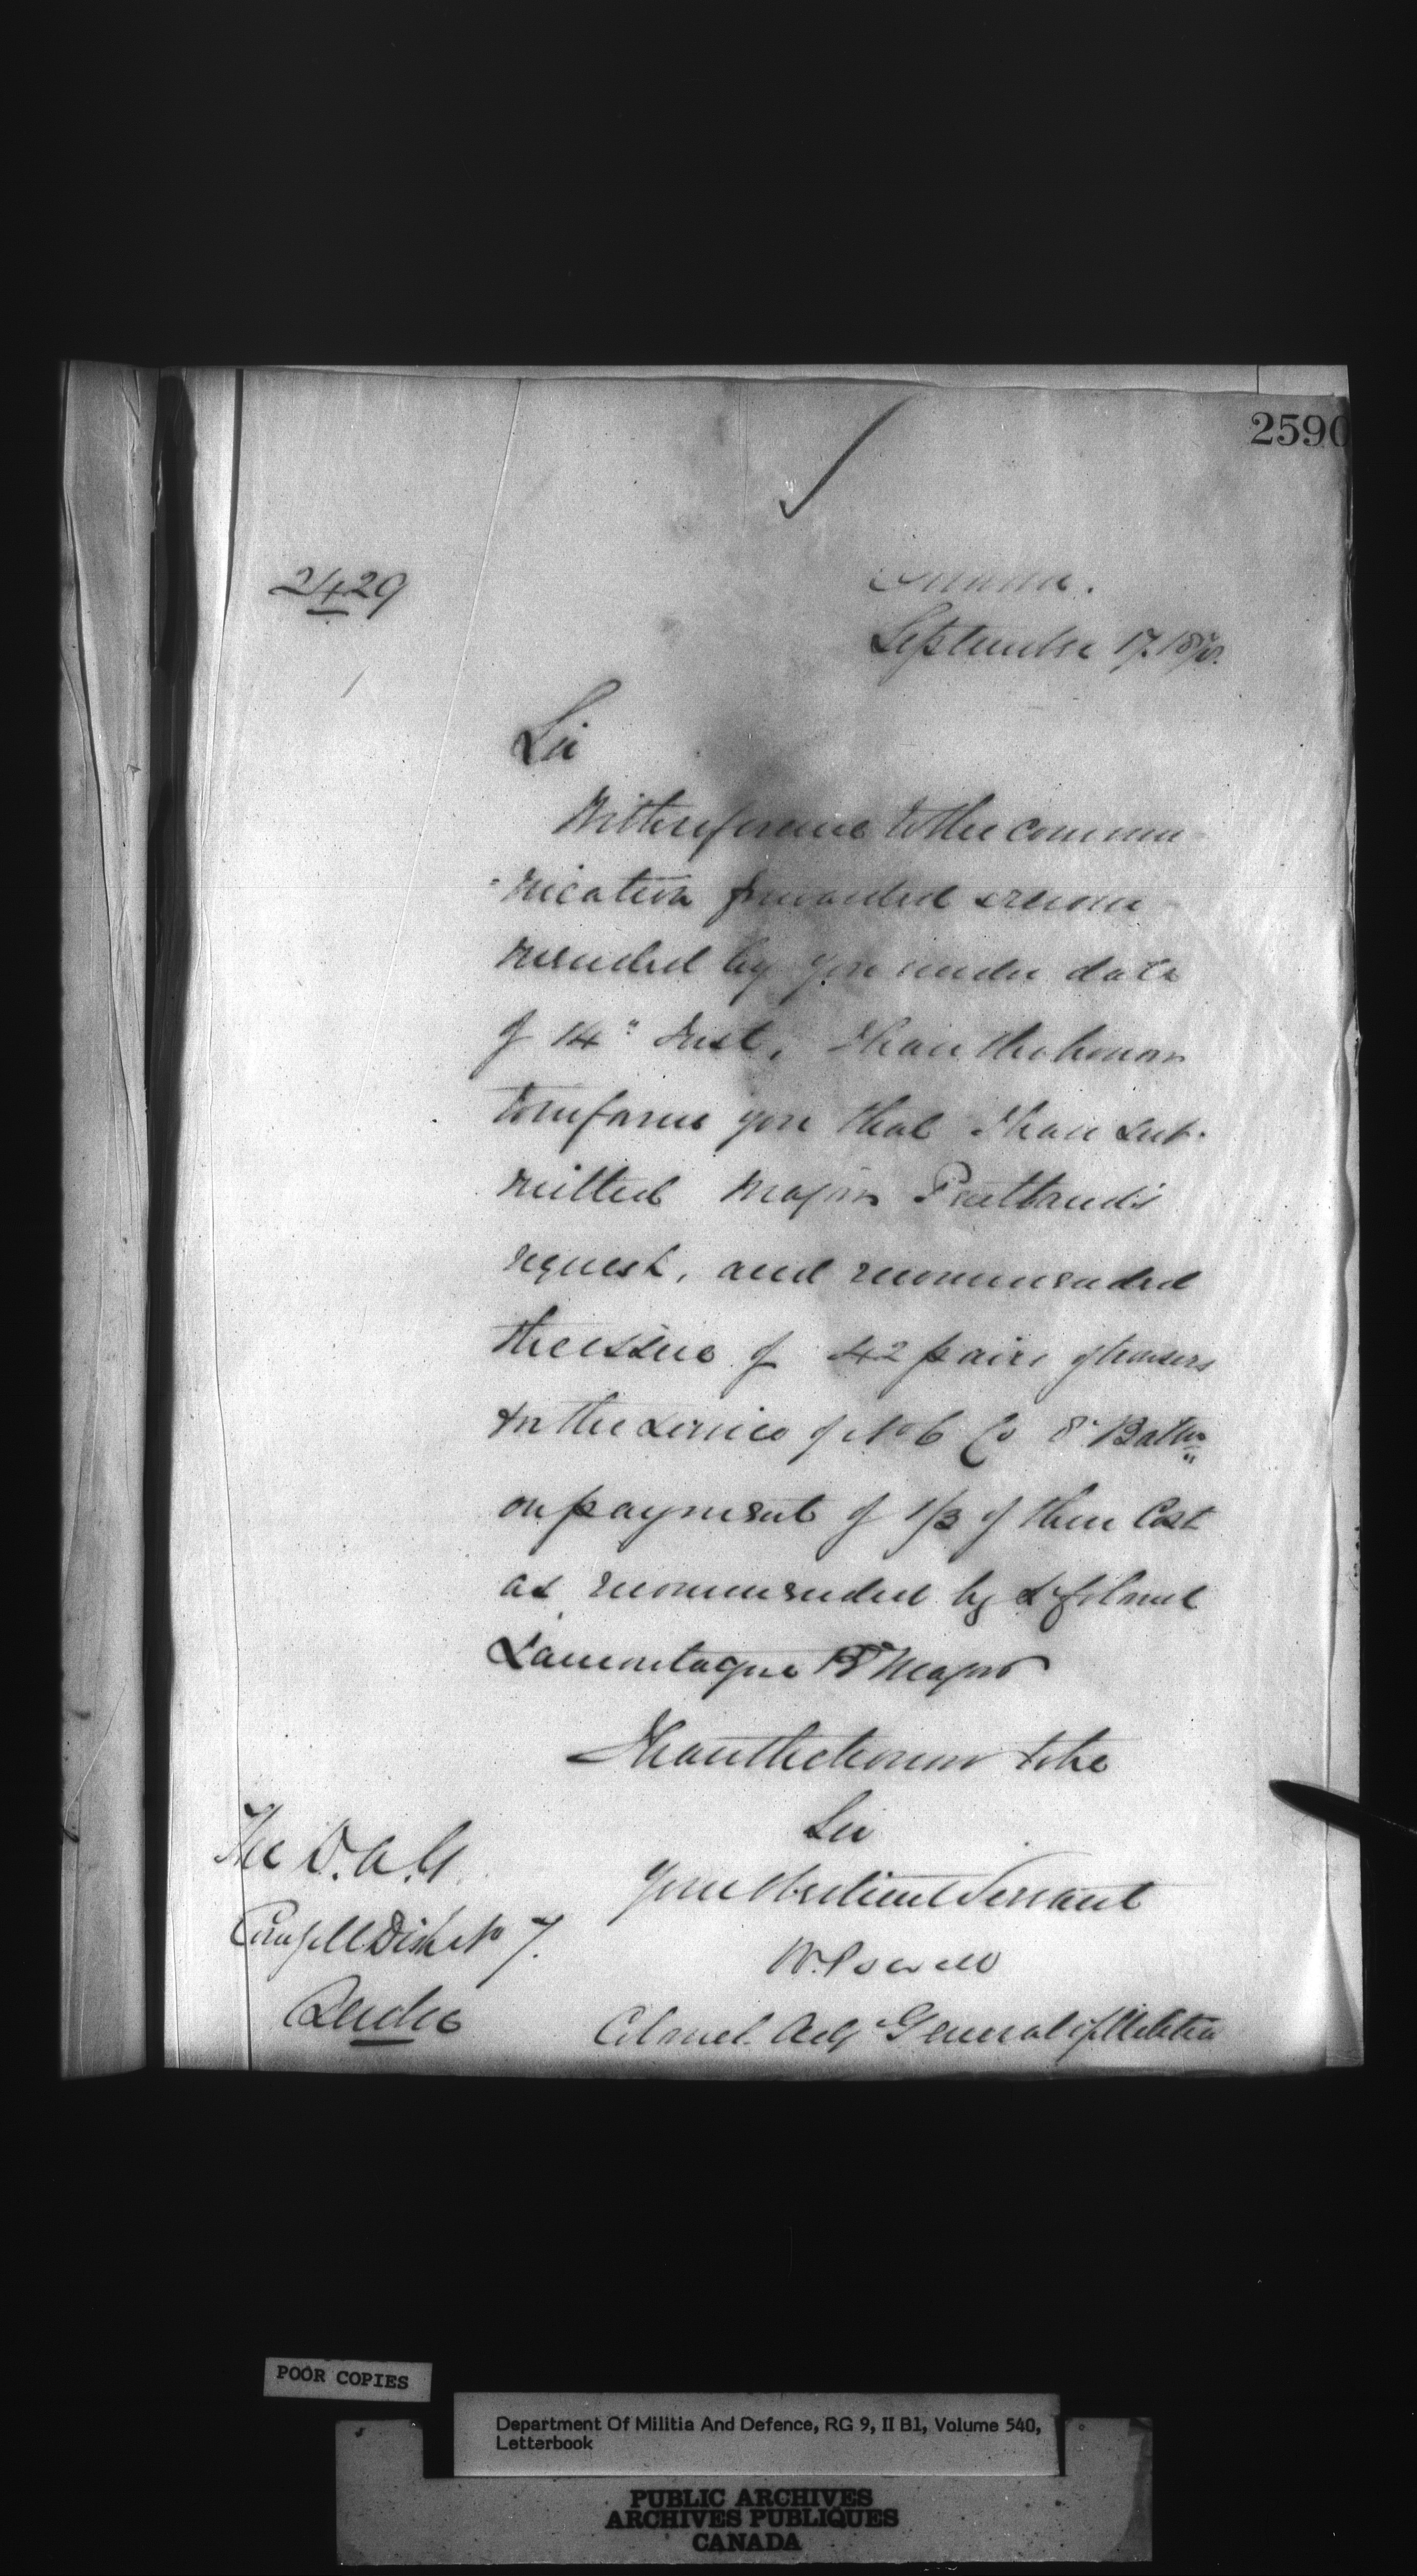 2590
2429
Ottawa.
September 17. 187
Sir
With reference to the commu
-nication forwarded & recom
mended by you under date
of 14" Inst. I have the honor
to inform you that I have sub-
mitted Major
request, and recommended
the issue of 42 pairs of trousers
for the service of No 6 Co 8" Battn
on payment of 1/3 of their Cost
as recommended by Lt Colonel
Lamontagne Bde Major
I have the honor to be
Sir
Your Obedient Servant
W. Powell
Colonel Adjt General of Militia
The D.A.G.
Comg M Dist No 7.
Quebec
POOR COPIES
Department Of Militia And Defence, RG 9, II B1, Volume 540,
Letterbook
PUBLIC ARCHIVES
ARCHIVES PUBLIQUES
CANADA